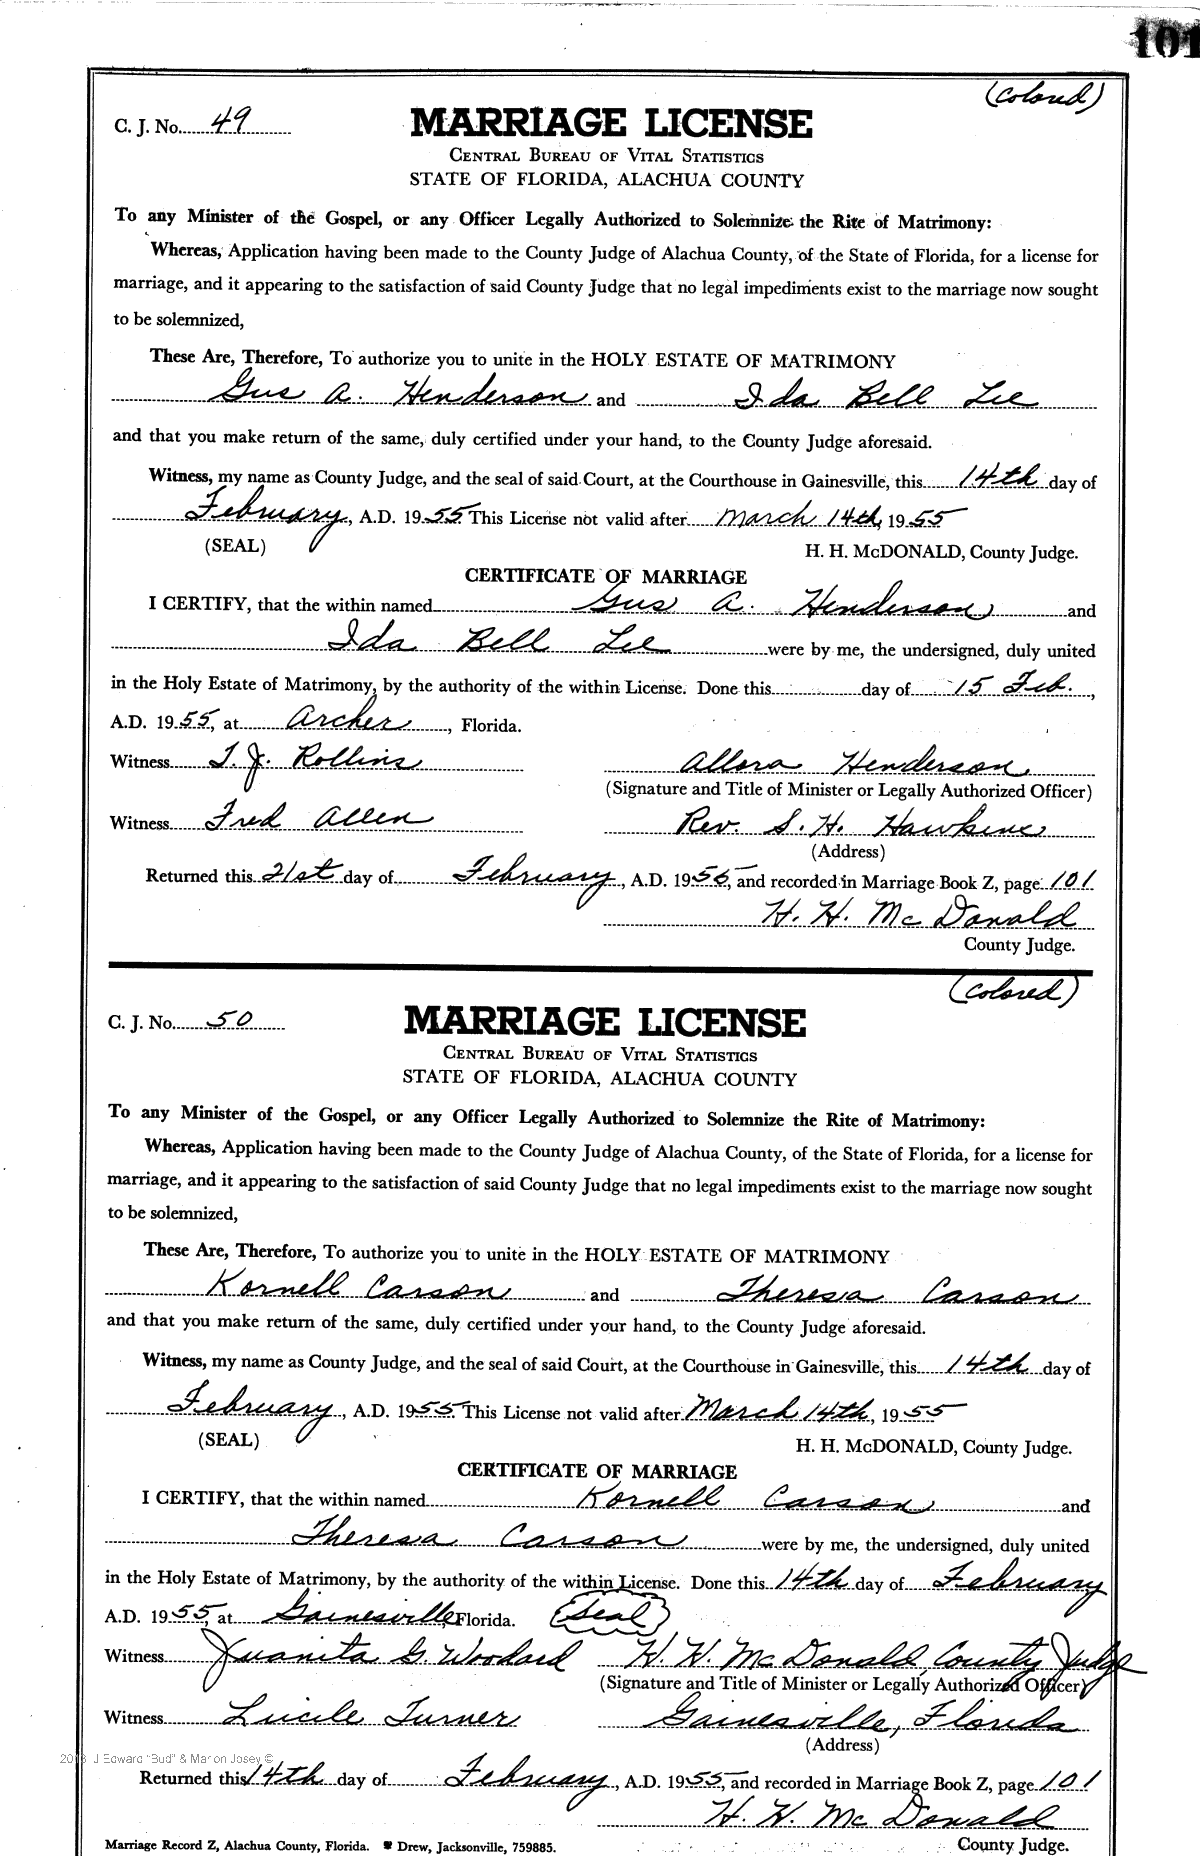 101
(Colored)
C. J. No. 49
MARRIAGE LICENSE
CENTRAL BUREAU OF VITAL STATISTICS
STATE OF FLORIDA, ALACHUA COUNTY
To any Minister of the Gospel, or any Officer Legally Authorized to Solemnize the Rite of Matrimony:
Whereas, Application having been made to the County Judge of Alachua County, of the State of Florida, for a license for
marriage, and it appearing to the satisfaction of said County Judge that no legal impediments exist to the marriage now sought
to be solemnized,
These Are, Therefore, To authorize you to unite in the HOLY ESTATE OF MATRIMONY
Gus A. Henderson and Ida Bell Lee
and that you make return of the same, duly certified under your hand, to the County Judge aforesaid.
Witness, my name as County Judge, and the seal of said Court, at the Courthouse in Gainesville, this 14th day of
February, A.D. 1955. This License not valid after March 14th, 1955
(SEAL) H. H. McDONALD, County Judge.
CERTIFICATE OF MARRIAGE
I CERTIFY, that the within named Gus A. Henderson and
Ida Bell Lee were by me, the undersigned, duly united
in the Holy Estate of Matrimony, by the authority of the within License. Done this day of 15 Feb.,
A.D. 1955, at Archer, Florida.
Witness T. J. Rollins Allora Henderson
(Signature and Title of Minister or Legally Authorized Officer)
Witness Fred Allen Rev. S. H. Hawkins
(Address)
Returned this 21st day of February, A.D. 1955, and recorded in Marriage Book Z, page 101
H. H. McDonald
County Judge.
(Colored)
C. J. No. 50
MARRIAGE LICENSE
CENTRAL BUREAU OF VITAL STATISTICS
STATE OF FLORIDA, ALACHUA COUNTY
To any Minister of the Gospel, or any Officer Legally Authorized to Solemnize the Rite of Matrimony:
Whereas, Application having been made to the County Judge of Alachua County, of the State of Florida, for a license for
marriage, and it appearing to the satisfaction of said County Judge that no legal impediments exist to the marriage now sought
to be solemnized,
These Are, Therefore, To authorize you to unite in the HOLY ESTATE OF MATRIMONY
Kornell Carson and Theresa Carson
and that you make return of the same, duly certified under your hand, to the County Judge aforesaid.
Witness, my name as County Judge, and the seal of said Court, at the Courthouse in Gainesville, this 14th day of
February, A.D. 1955. This License not valid after March 14th, 1955
(SEAL) H. H. McDONALD, County Judge.
CERTIFICATE OF MARRIAGE
I CERTIFY, that the within named Kornell Carson and
Theresa Carson were by me, the undersigned, duly united
in the Holy Estate of Matrimony, by the authority of the within License. Done this 14th day of February
A.D. 1955, at Gainesville, Florida. Seal
Witness Juanita G. Woodard H. H. McDonald, County Judge
(Signature and Title of Minister or Legally Authorized Officer)
Witness Lucile Turner Gainesville, Florida
(Address)
2013 J Edward "Bud" & Marion Josey ©
Returned this 14th day of February, A.D. 1955, and recorded in Marriage Book Z, page 101
H. H. McDonald
Marriage Record Z, Alachua County, Florida. Drew, Jacksonville, 759885. County Judge.